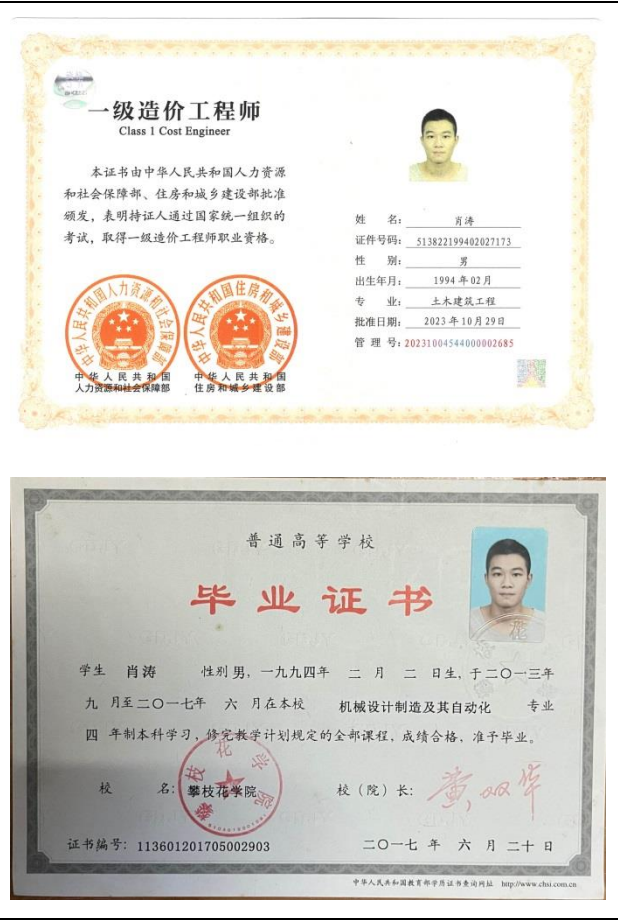 一级造价工程师
Class 1 Cost Engineer
本证书由中华人民共和国人力资源
和社会保障部、住房和城乡建设部批准
颁发，表明持证人通过国家统一组织的
考试，取得一级造价工程师职业资格。
中华人民共和国人力资源和社会保障部
中华人民共和国住房和城乡建设部
中华人民共和国
人力资源和社会保障部
中华人民共和国
住房和城乡建设部
姓 名： 肖涛
证件号码： 513822199402027173
性 别： 男
出生年月： 1994年02月
专 业： 土木建筑工程
批准日期： 2023年10月29日
管 理 号：20231004544000002685
普通高等学校
毕业证书
学生 肖涛 性别 男，一九九四年 二 月 二 日生，于二〇一三年
九 月至二〇一七年 六 月在本校 机械设计制造及其自动化 专业
四 年制本科学习，修完教学计划规定的全部课程，成绩合格，准予毕业。
校 名：攀枝花学院
攀枝花学院
校（院）长：
证书编号：113601201705002903
二〇一七 年 六 月 二十 日
中华人民共和国教育部学历证书查询网址 http://www.chsi.com.cn